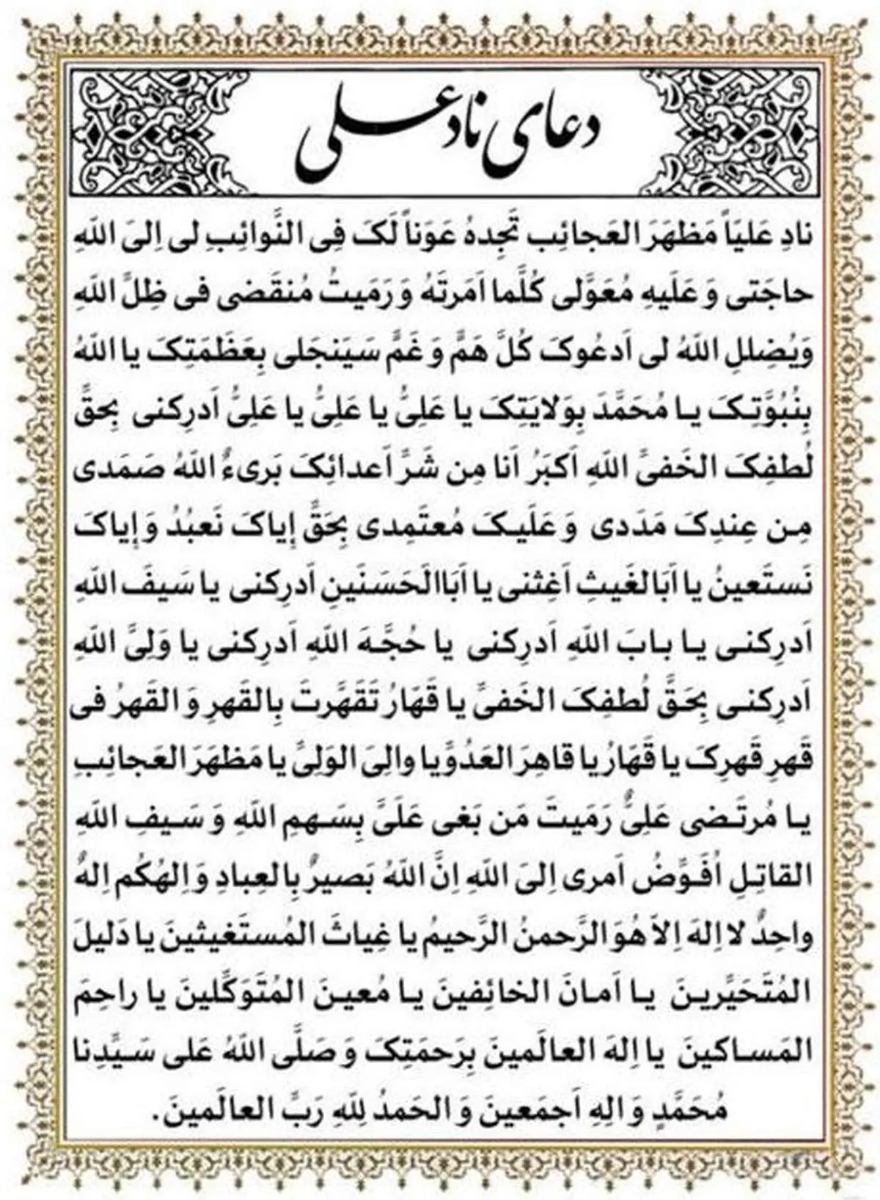 دعای ناد علی
نادِ عَلیَاً مَظهَرَ العَجائِب تَجِدهُ عَوَناً لَکَ فِی النَّوائِبِ لی اِلیَ اللهِ
حاجَتی وَ عَلَیهِ مُعَوَّلی کُلَّما اَمَرتَهُ وَ رَمَیتُ مُنقَضی فی ظِلَّ اللهِ
وَیُضِللِ اللهُ لی اَدعُوکَ کُلَّ هَمَّ وَ غَمَّ سَیَنجَلی بِعَظَمَتِکَ یا اللهُ
بِنُبُوَّتِکَ یا مُحَمَّدَ بِوَلایَتِکَ یا عَلِیُّ یا عَلِیُّ یا عَلِیُّ اَدرِکنی بِحقَّ
لُطفِکَ الخَفیَّ اللهِ اَکبَرُ اَنا مِن شَرَّ اَعدائِکَ بَریءٌ اللهُ صَمَدی
مِن عِندِکَ مَدَدی وَ عَلَیکَ مُعتَمِدی بِحَقَّ إیاکَ نَعبُدُ وَ إیاکَ
نَستَعینُ یا اَبَالغَیثِ اَغِثنی یا اَبَاالَحَسَنَینِ اَدرِکنی یا سَیفَ اللهِ
اَدرِکنی یا بابَ اللهِ اَدرِکنی یا حُجَّهَ اللهِ اَدرِکنی یا وَلِیَّ اللهِ
اَدرِکنی بِحَقَّ لُطفِکَ الخَفیَّ یا قَهّارُ تَقَهَّرتَ بِالقَهرِ وَ القَهرُ فی
قَهرِ قَهرِکَ یا قَهّارُ یا قاهِرَ العَدُوَّیا والِیَ الوَلِیَّ یا مَظهَرَ العَجائِبِ
یا مُرتَضی عَلِیٌّ رَمَیتَ مَن بَغی عَلَیَّ بِسَهمِ اللهِ وَ سَیفِ اللهِ
القاتِلِ اُفَوَّضُ اَمری اِلیَ اللهِ اِنَّ اللهُ بَصیرٌ بِالعِبادِ وَ اِلهُکُم اِلهٌ
واحِدٌ لا اِلهَ اِلاّ هُوَ الرَّحمنُ الرَّحیمُ یا غِیاثَ المُستَغیثینَ یا دَلیلَ
المُتَحَیِّرینَ یا اَمانَ الخائِفینَ یا مُعینَ المُتَوَکِّلینَ یا راحِمَ
المَساکینَ یا اِلهَ العالَمینَ بِرَحمَتِکَ وَ صَلَّی اللهُ عَلی سَیِّدِنا
مُحَمَّدٍ وَ الِهِ اَجمَعینَ وَ الحَمدُ لِلّهِ رَبَّ العالَمینَ.